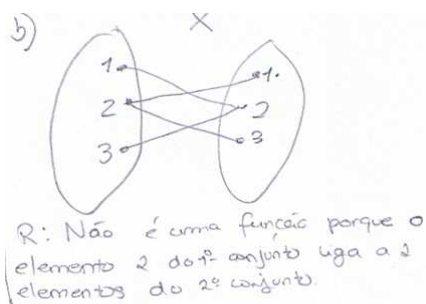 b) X
1 1.
2 2
3 3
R: Não é uma função porque o
elemento 2 do 1º conjunto liga a 2
elementos do 2º conjunto.